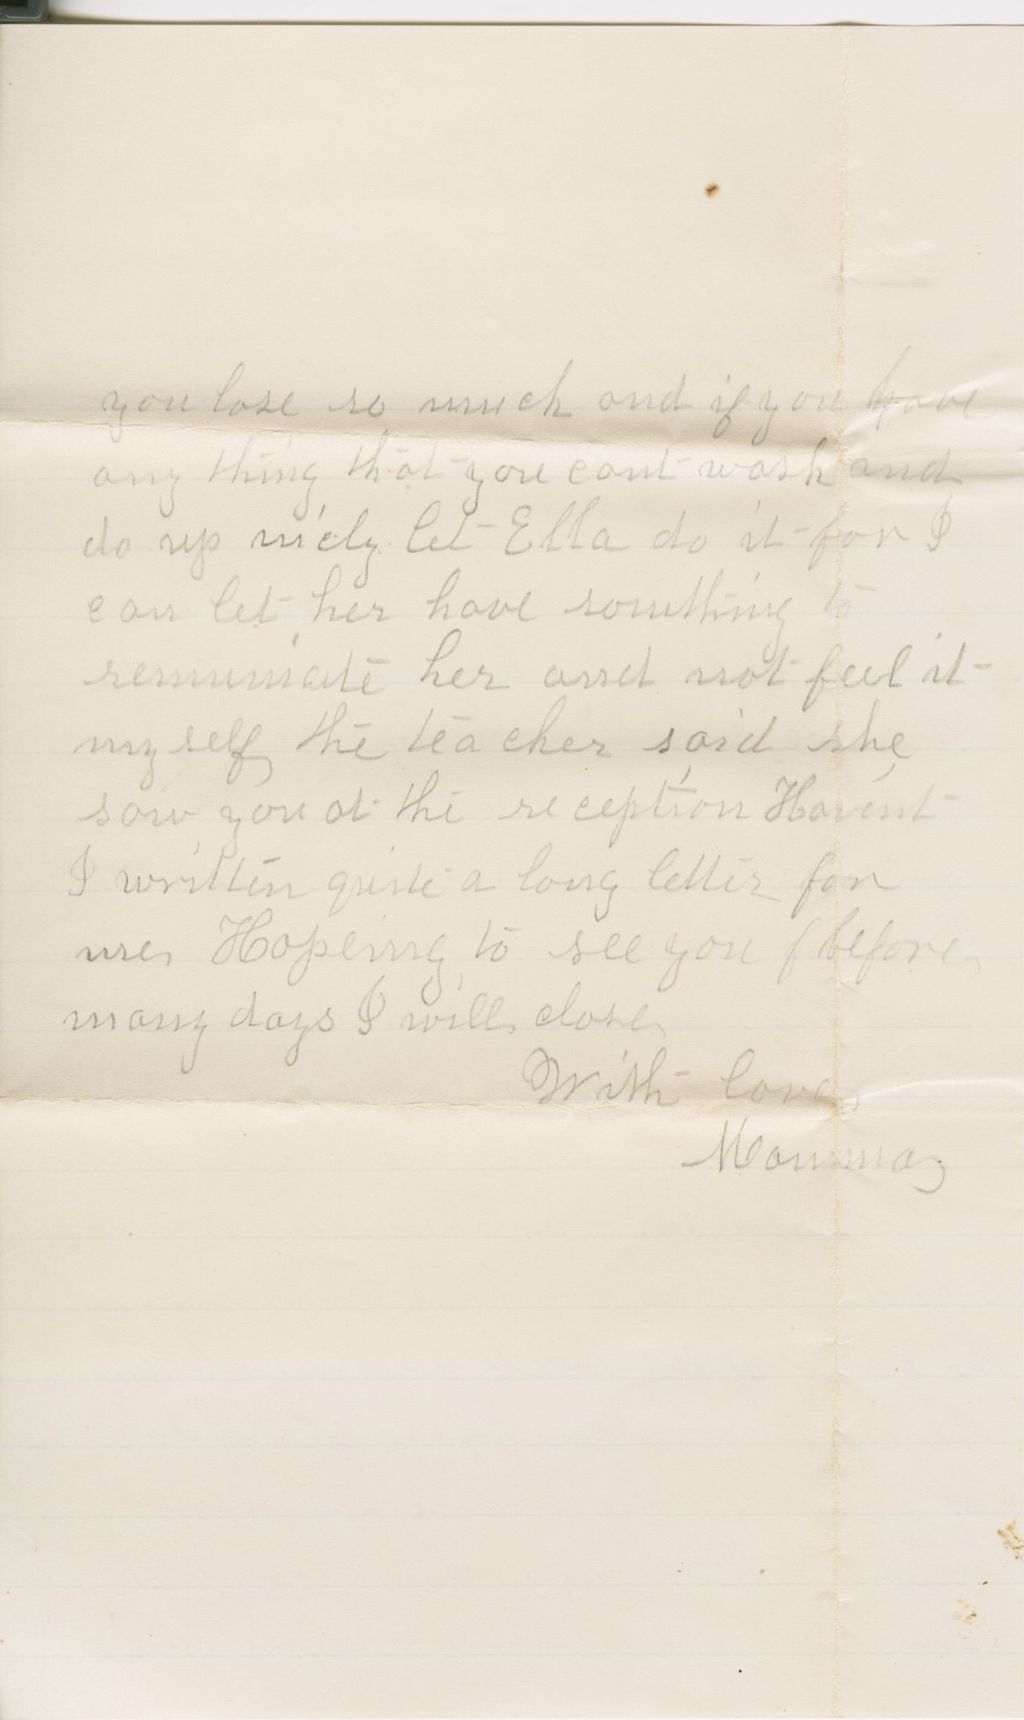 you lose so much and if you have
any thing that you cant wash and
do up nicely let Ella do it for I
can let her have something to
remuniate her and not feel it
myself the teacher said she
saw you at the reception Havent
I written quite a long letter for
me. Hopeing to see you before
many days I will close
With love
Mamma